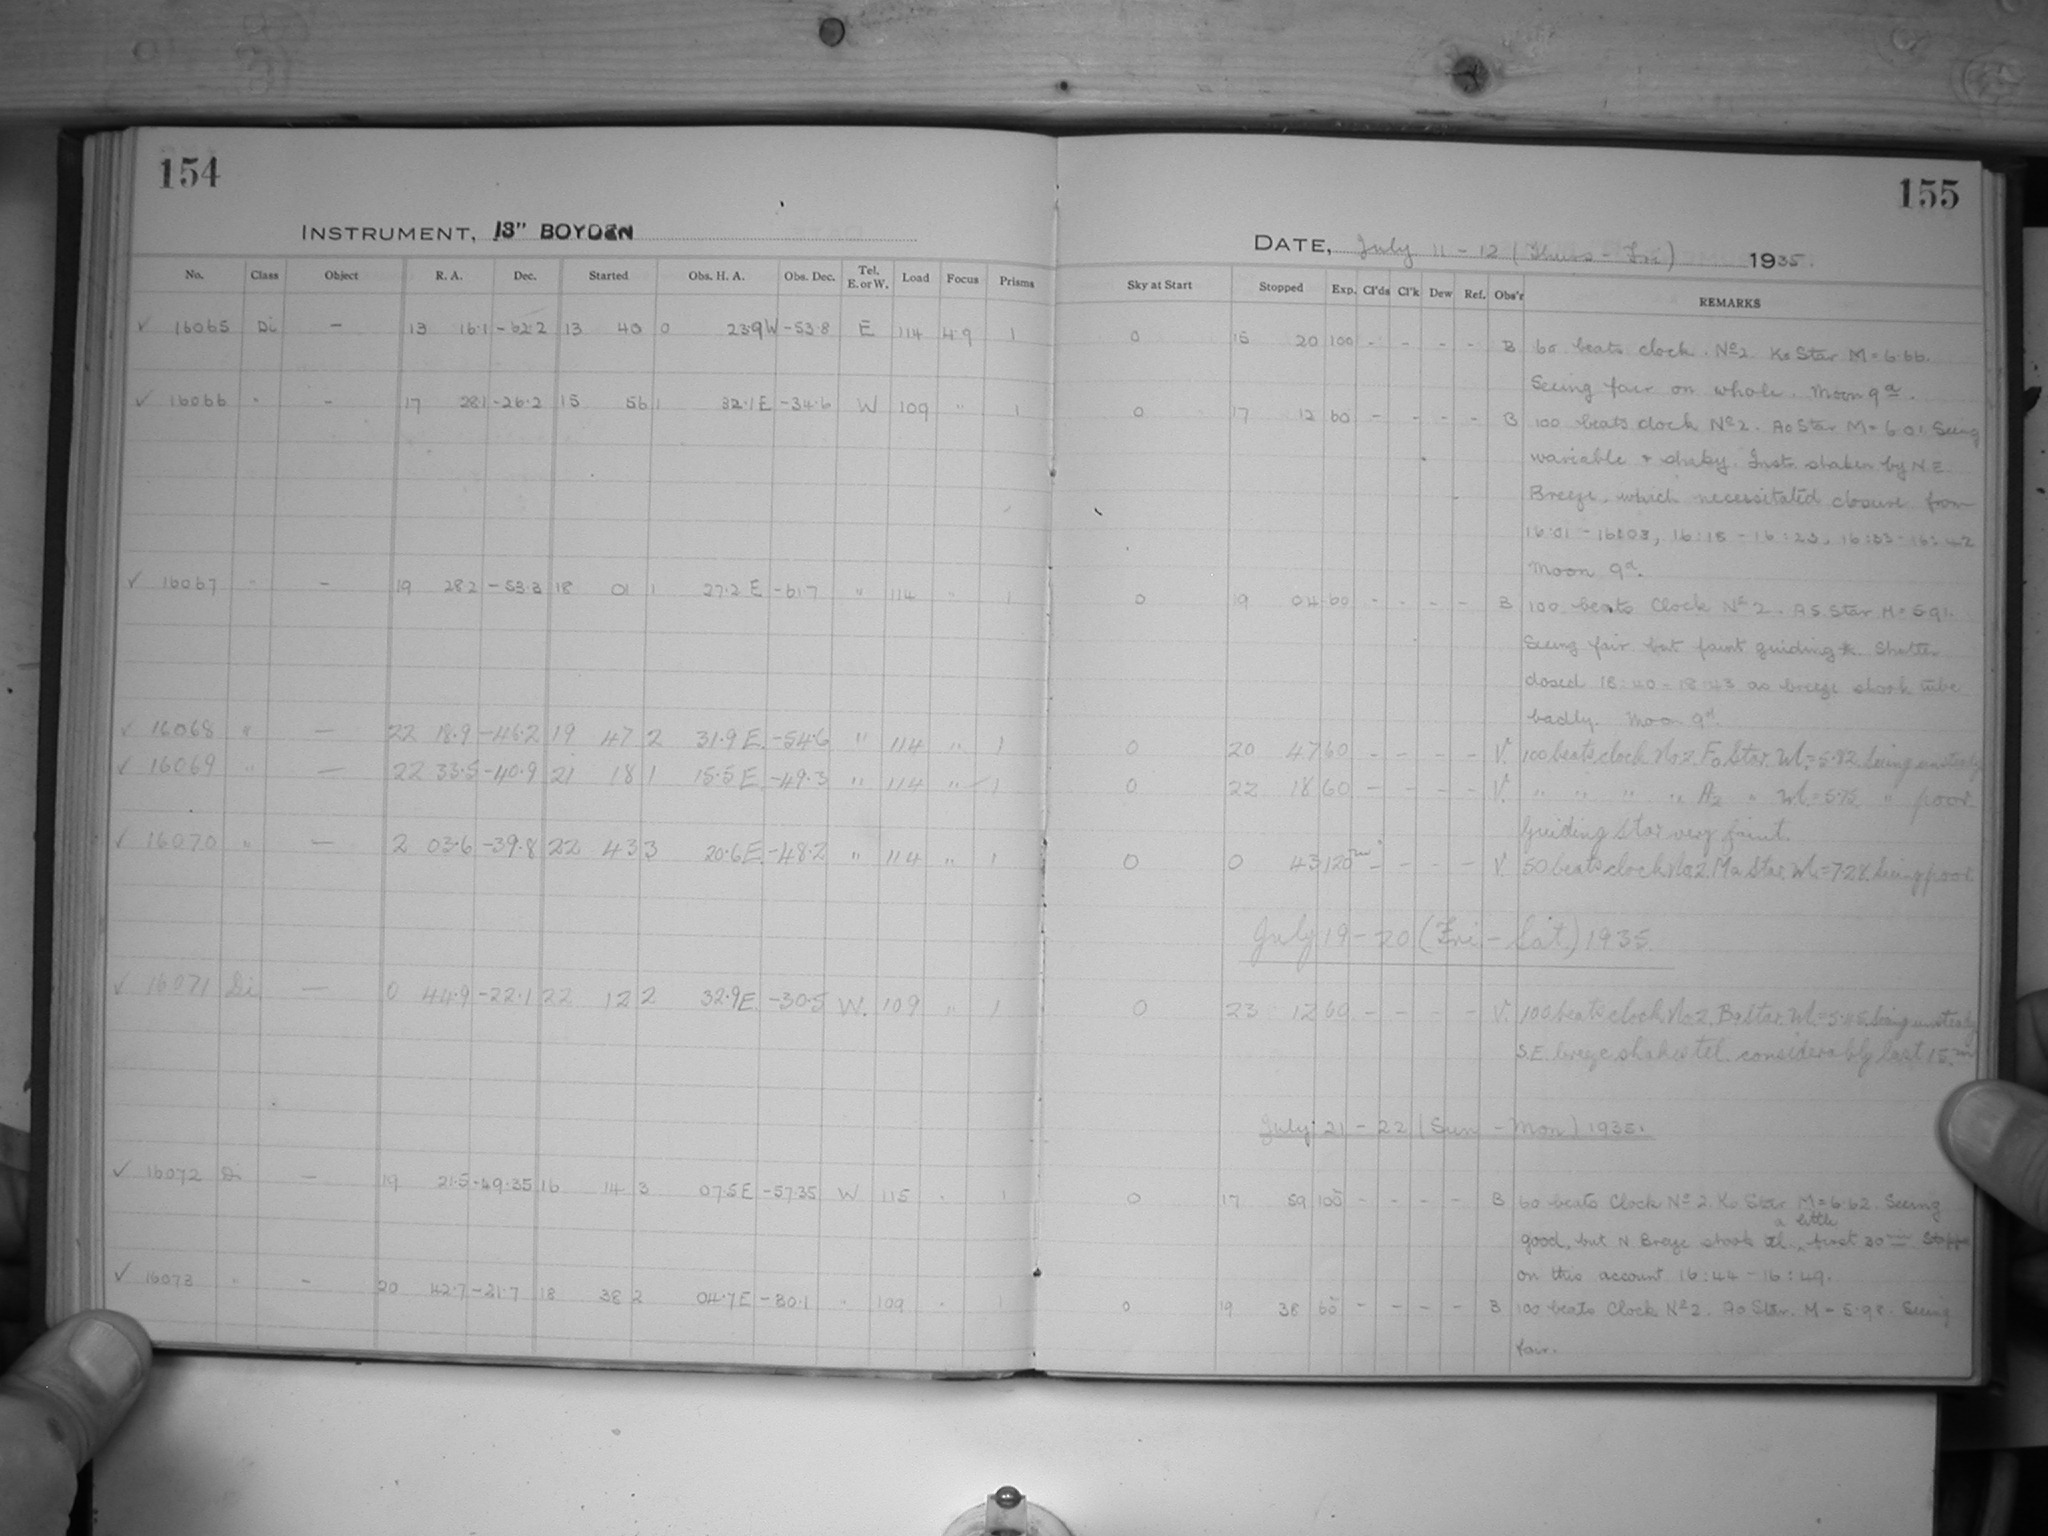 154
INSTRUMENT, 13" BOYDEN
No. Class Object R. A. Dec. Started Obs. H. A. Obs. Dec. Tel. E. or W. Load Focus Prisms
✓ 16065 Di — 13 16.1 -62.2 13 40 0 23.9 W -53.8 E 114 4.9 1
✓ 16066 " - 17 28.1 -26.2 15 56 1 32.1 E -34.6 W 109 " 1
✓ 16067 " - 19 28.2 -53.3 18 01 1 27.2 E -61.7 " 114 " 1
✓ 16068 " — 22 18.9 -46.2 19 47 2 31.9 E. -54.6 " 114 " 1
✓ 16069 " — 22 33.5 -40.9 21 18 1 15.5 E -49.3 " 114 " 1
✓ 16070 " — 2 03.6 -39.8 22 43 3 20.6 E. -48.2 " 114 " 1
✓ 16071 Di — 0 44.9 -22.1 22 12 2 32.9 E. -30.5 W. 109 " 1
✓ 16072 Di — 19 21.5 -49.35 16 14 3 07.5 E -57.35 W 115 " 1
✓ 16073 " - 20 42.7 -21.7 18 38 2 04.7 E -30.1 " 109 " 1
155
DATE, July 11 - 12 (Thurs - Fri) 1935.
Sky at Start Stopped Exp. Cl'ds Cl'k Dew Ref. Obs'r REMARKS
0 15 20 100 - - - - B 60 beats clock. No 2. K0 Star M = 6.66.
Seeing fair on whole. Moon 9d.
0 17 12 60 - - - - B 100 beats clock No 2. A0 Star M = 6.01. Seeing
variable & shaky. Instr. shaken by N.E.
Breeze, which necessitated closure from
16:01 - 16:03, 16:15 - 16:23, 16:33 - 16:42
Moon 9d.
0 19 04 60 - - - - B 100 beats Clock No 2. A5 Star M = 5.91.
Seeing fair but faint guiding *. Shutter
closed 18:40 - 18:43 as breeze shook tube
badly. Moon 9d.
0 20 47 60 - - - - V. 100 beats clock No 2. F0 Star. M. = 5.82. Seeing unsteady
0 22 18 60 - - - - V. " " " " A2 " M. = 5.75 " poor
Guiding star very faint.
0 0 43 120 - - - - V. 50 beats clock No 2. Ma Star. M. = 7.28. Seeing poor
July 19 - 20 (Fri - Sat.) 1935.
0 23 12 60 - - - - V. 100 beats clock No 2. B8 Star. M. = 5.45. Seeing unsteady
S.E. breeze shakes tel. considerably last 15m
July 21 - 22 (Sun - Mon) 1935.
0 17 59 100 - - - - B 60 beats Clock No 2. K0 Star M = 6.62. Seeing
a little
good, but N Breeze shook tel., first 30m. Stopped
on this account 16:44 - 16:49.
0 19 38 60 - - - - B 100 beats Clock No 2. A0 Star. M = 5.98. Seeing
fair.